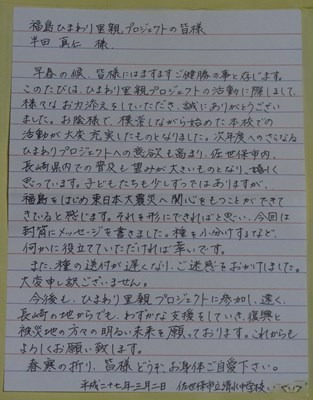 福島ひまわり里親プロジェクトの皆様
半田真仁 様
早春の候、皆様にはますますご健勝の事と存じます。
このたびは、ひまわり里親プロジェクトの活動に際しまして、
様々なお力添えをしていただき、誠にありがとうござい
ました。お陰様で、模索しながら始めた本校での
活動が大変充実したものとなりました。次年度へのさらなる
ひまわりプロジェクトへの意欲も高まり、佐世保市内、
長崎県内での普及も望みが大きいものとなり、嬉しく
思っています。子どもたちも少しずつではありますが、
福島をはじめ東日本大震災へ関心をもつことができて
きていると感じます。それを形にできればと思い、今回は
封筒にメッセージを書きました。種を小分けするなど、
何かに役立てていただければ幸いです。
また、種の送付が遅くなり、ご迷惑をおかけしました。
大変申し訳ございません。
今後も、ひまわり里親プロジェクトに参加し、遠く、
長崎の地からでも、わずかな支援をしていき、復興と
被災地の方々の明るい未来を願っております。これからも
よろしくお願い致します。
春寒の折り、皆様どうぞお身体ご自愛下さい。
平成二十七年三月二日 佐世保市立清水中学校